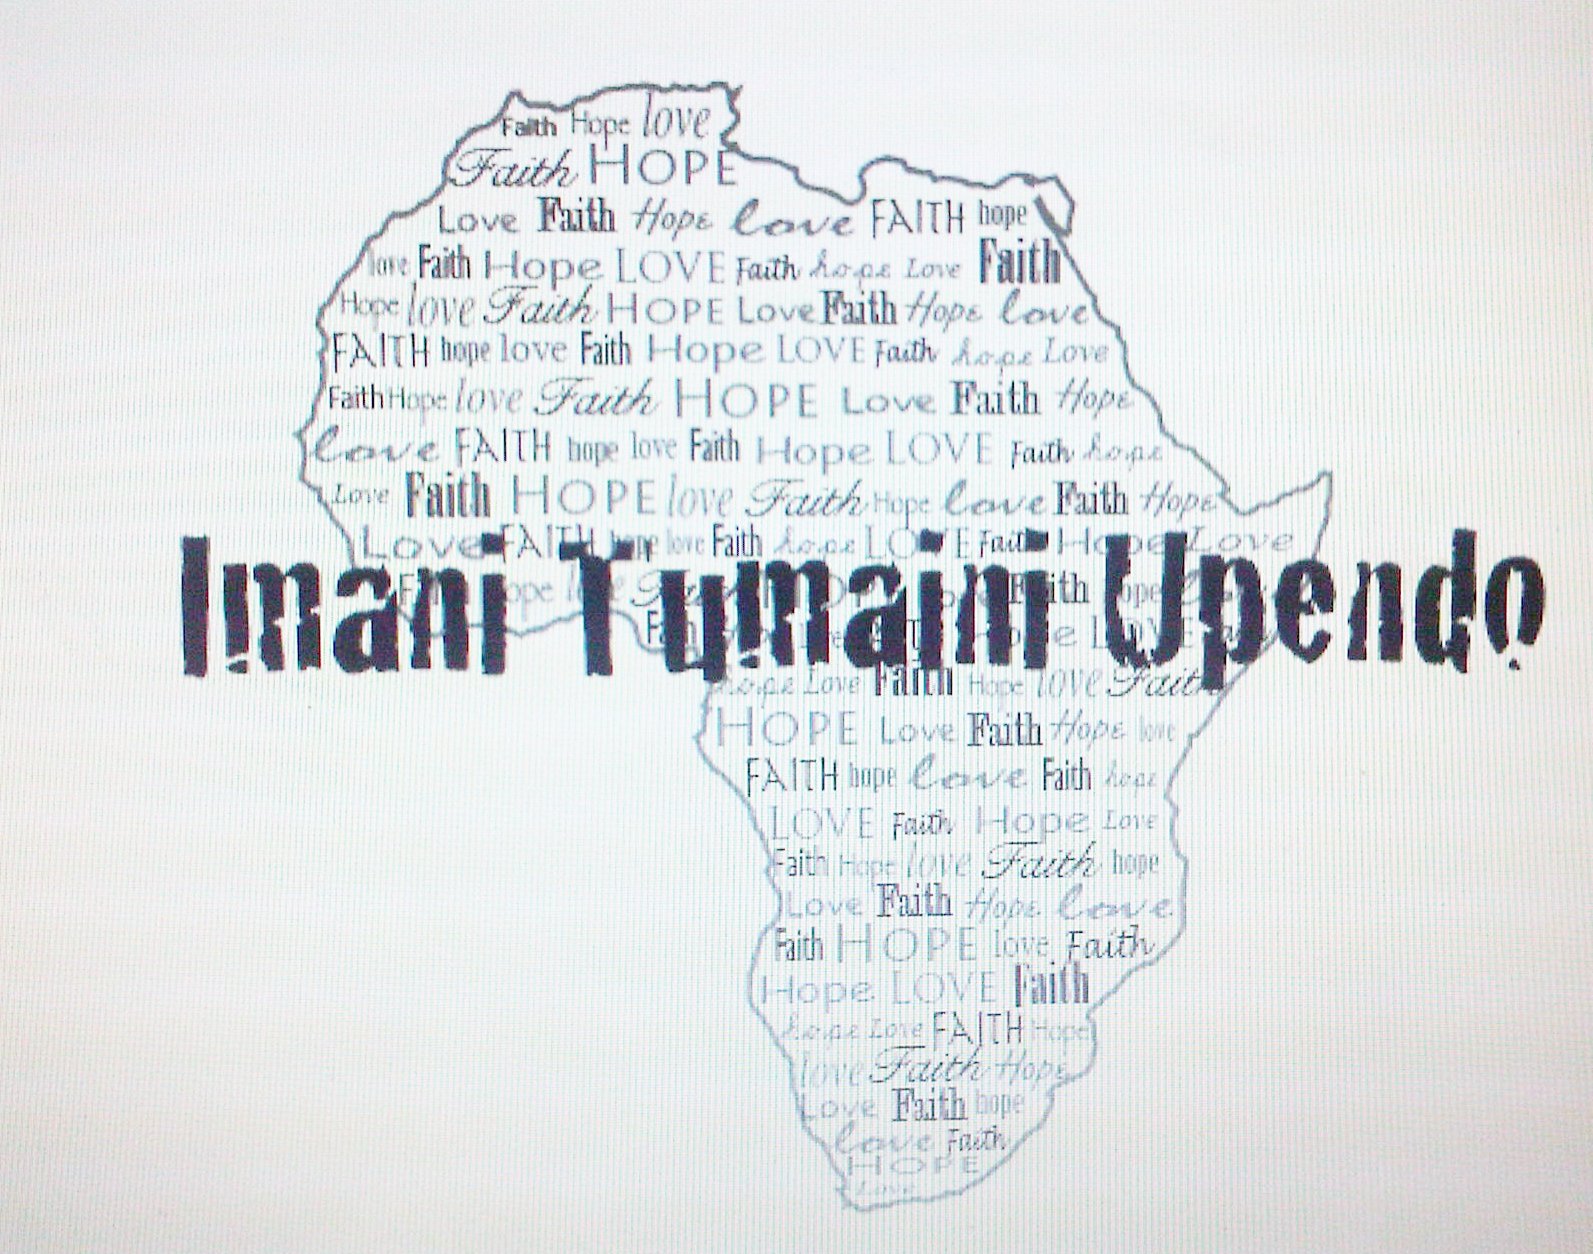 Faith Hope love
Faith HOPE
Love Faith Hope love FAITH hope
love Faith Hope LOVE Faith hope Love Faith
Hope love Faith HOPE Love Faith Hope love
FAITH hope love Faith Hope LOVE Faith hope Love
Faith Hope love Faith HOPE Love Faith Hope
love FAITH hope love Faith Hope LOVE Faith hope
Love Faith HOPE love Faith Hope love Faith Hope
Love FAITH hope love Faith hope LOVE Faith Hope Love
Imani Tumaini Upendo
hope Love Faith Hope love Faith
HOPE Love Faith Hope love
FAITH hope love Faith hope
LOVE Faith Hope Love
Faith Hope love Faith hope
Love Faith Hope love
Faith HOPE love Faith
Hope LOVE Faith
hope Love FAITH Hope
love Faith Hope
Love Faith hope
love Faith
HOPE
Love